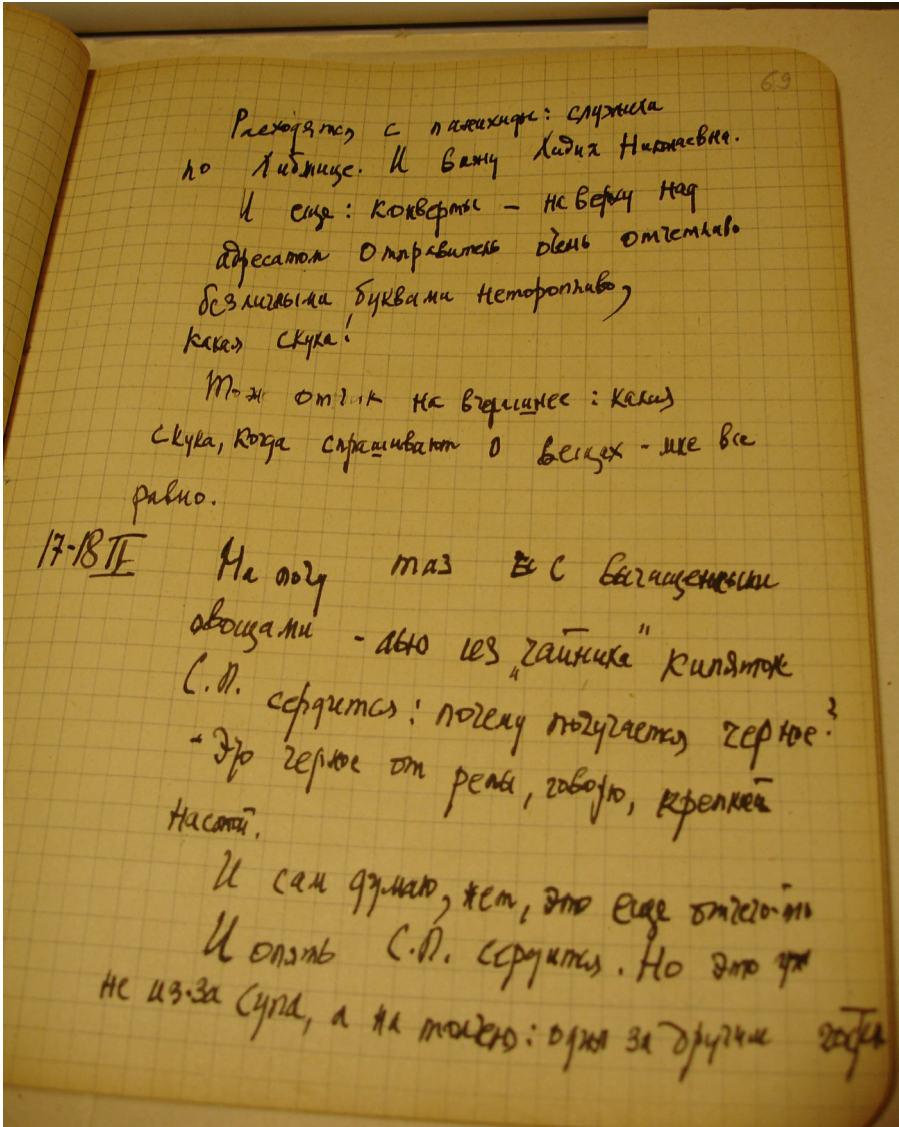 69
Расходятся с панихиды: служила
по Либмице. И вижу Лидия Николаевна.
И еще: конверты – на верху над
адресатом отправитель очень отчетливо
безличными буквами неторопливо,
какая скука!
на вчерашнее: какая
скука, когда спрашивают о вещах – мне все
равно.
17-18 II На полу таз с вычищенными
овощами – лью из „чайника“ кипяток
С.П. сердится: почему получается черное?
– Это черное от репы, говорю, крепкий
настой.
И сам думаю, нет, это еще отчего-то
И опять С.П. сердится. Но это уж
не из-за супа, а на толчею: один за другим гости